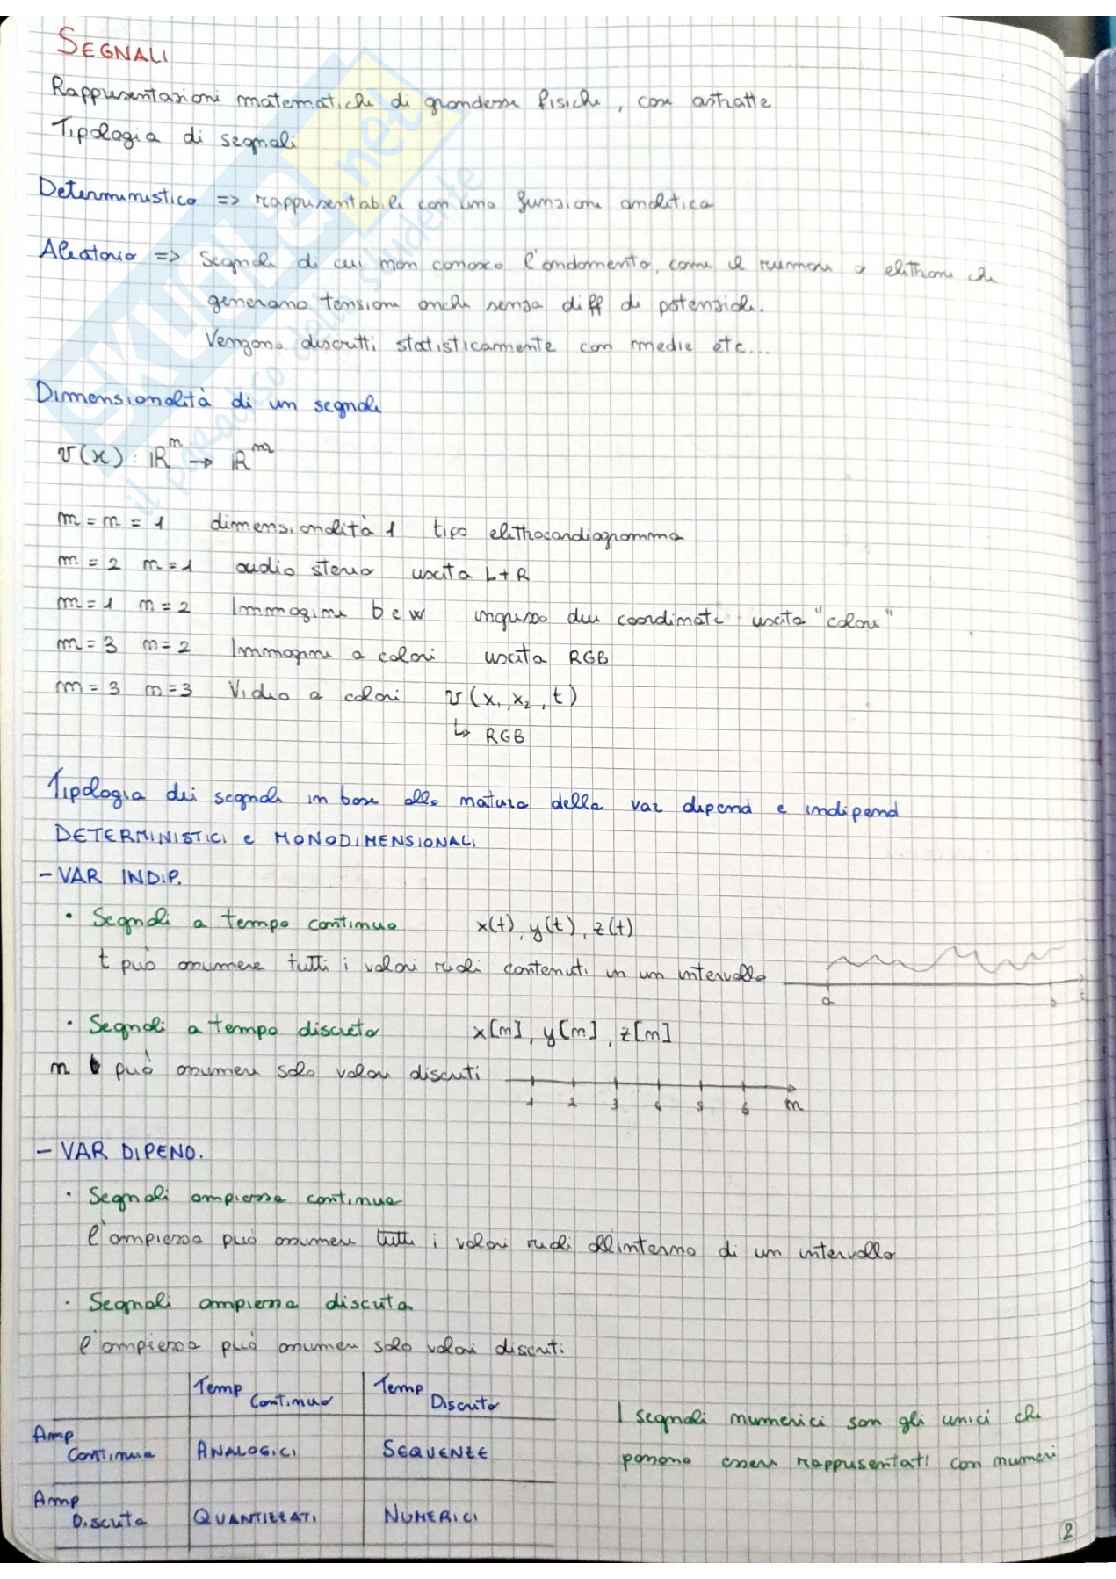 SEGNALI
Rappresentazioni matematiche di grandezze fisiche, con astratte
Tipologia di segnali
Deterministico => rappresentabile con una funzione analitica
Aleatorio => Segnali di cui non conosco l'andamento, come il rumore elettroni che
generano tensioni anche senza diff di potenziale.
Vengono descritti statisticamente con medie etc...
Dimensionalità di un segnale
v(x): ℝⁿ → ℝᵐ
m = n = 1 dimensionalità 1 tipo elettrocardiogramma
m = 2 n = 1 audio stereo uscita L+R
m = 1 n = 2 Immagine b e w ingresso due coordinate uscita "colore"
m = 3 n = 2 Immagine a colori uscita RGB
m = 3 n = 3 Video a colori v(x₁ x₂, t)
↳ RGB
Tipologia dei segnali in base alla natura della var dipend e indipend
DETERMINISTICI e MONODIMENSIONALI
- VAR INDIP.
• Segnali a tempo continuo x(t), y(t), z(t)
t può assumere tutti i valori reali contenuti in un intervallo
a b t
• Segnali a tempo discreto x[n], y[n], z[n]
n può assumere solo valori discreti
1 2 3 4 5 6 n
- VAR DIPEND.
• Segnali ampiezza continua
l'ampiezza può assumere tutti i valori reali all'interno di un intervallo
• Segnali ampiezza discreta
l'ampiezza può assumere solo valori discreti
Temp Continuo Temp Discreto
Amp Continua ANALOGICI SEQUENZE
Amp Discreta QUANTIZZATI NUMERICI
I segnali numerici son gli unici che
possono essere rappresentati con numeri
2
SKUOLA.net
il paradiso dello studente